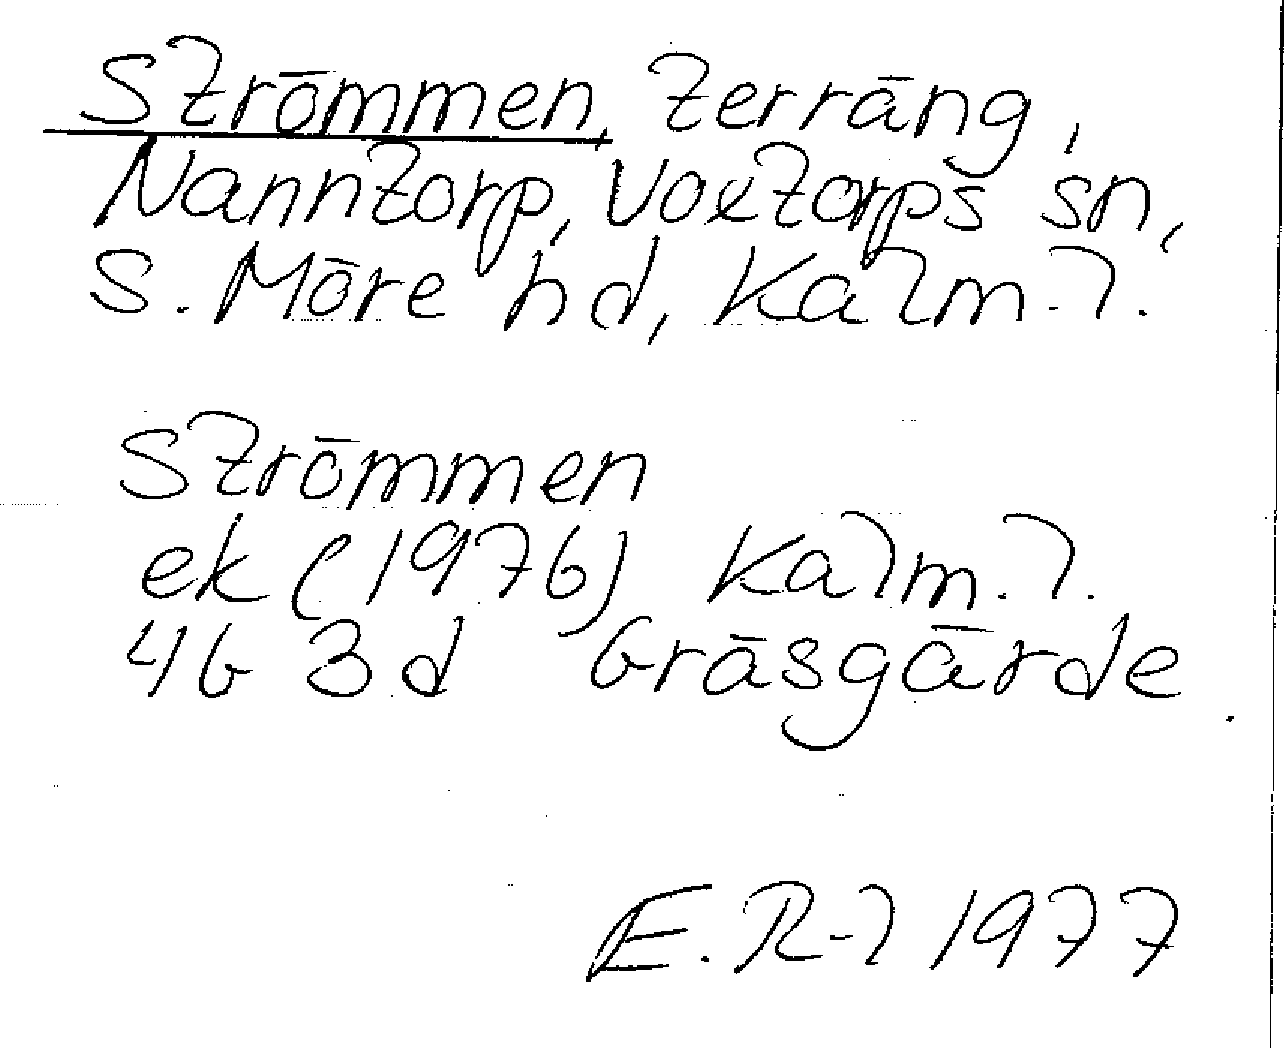 Strömmen, terräng,
Nanntorp, Voxtorps sn,
S. Möre hd, Kalm. l.
Strömmen
ek (1976) Kalm. l.
4G 3d Gräsgärde
E. R-l 1977